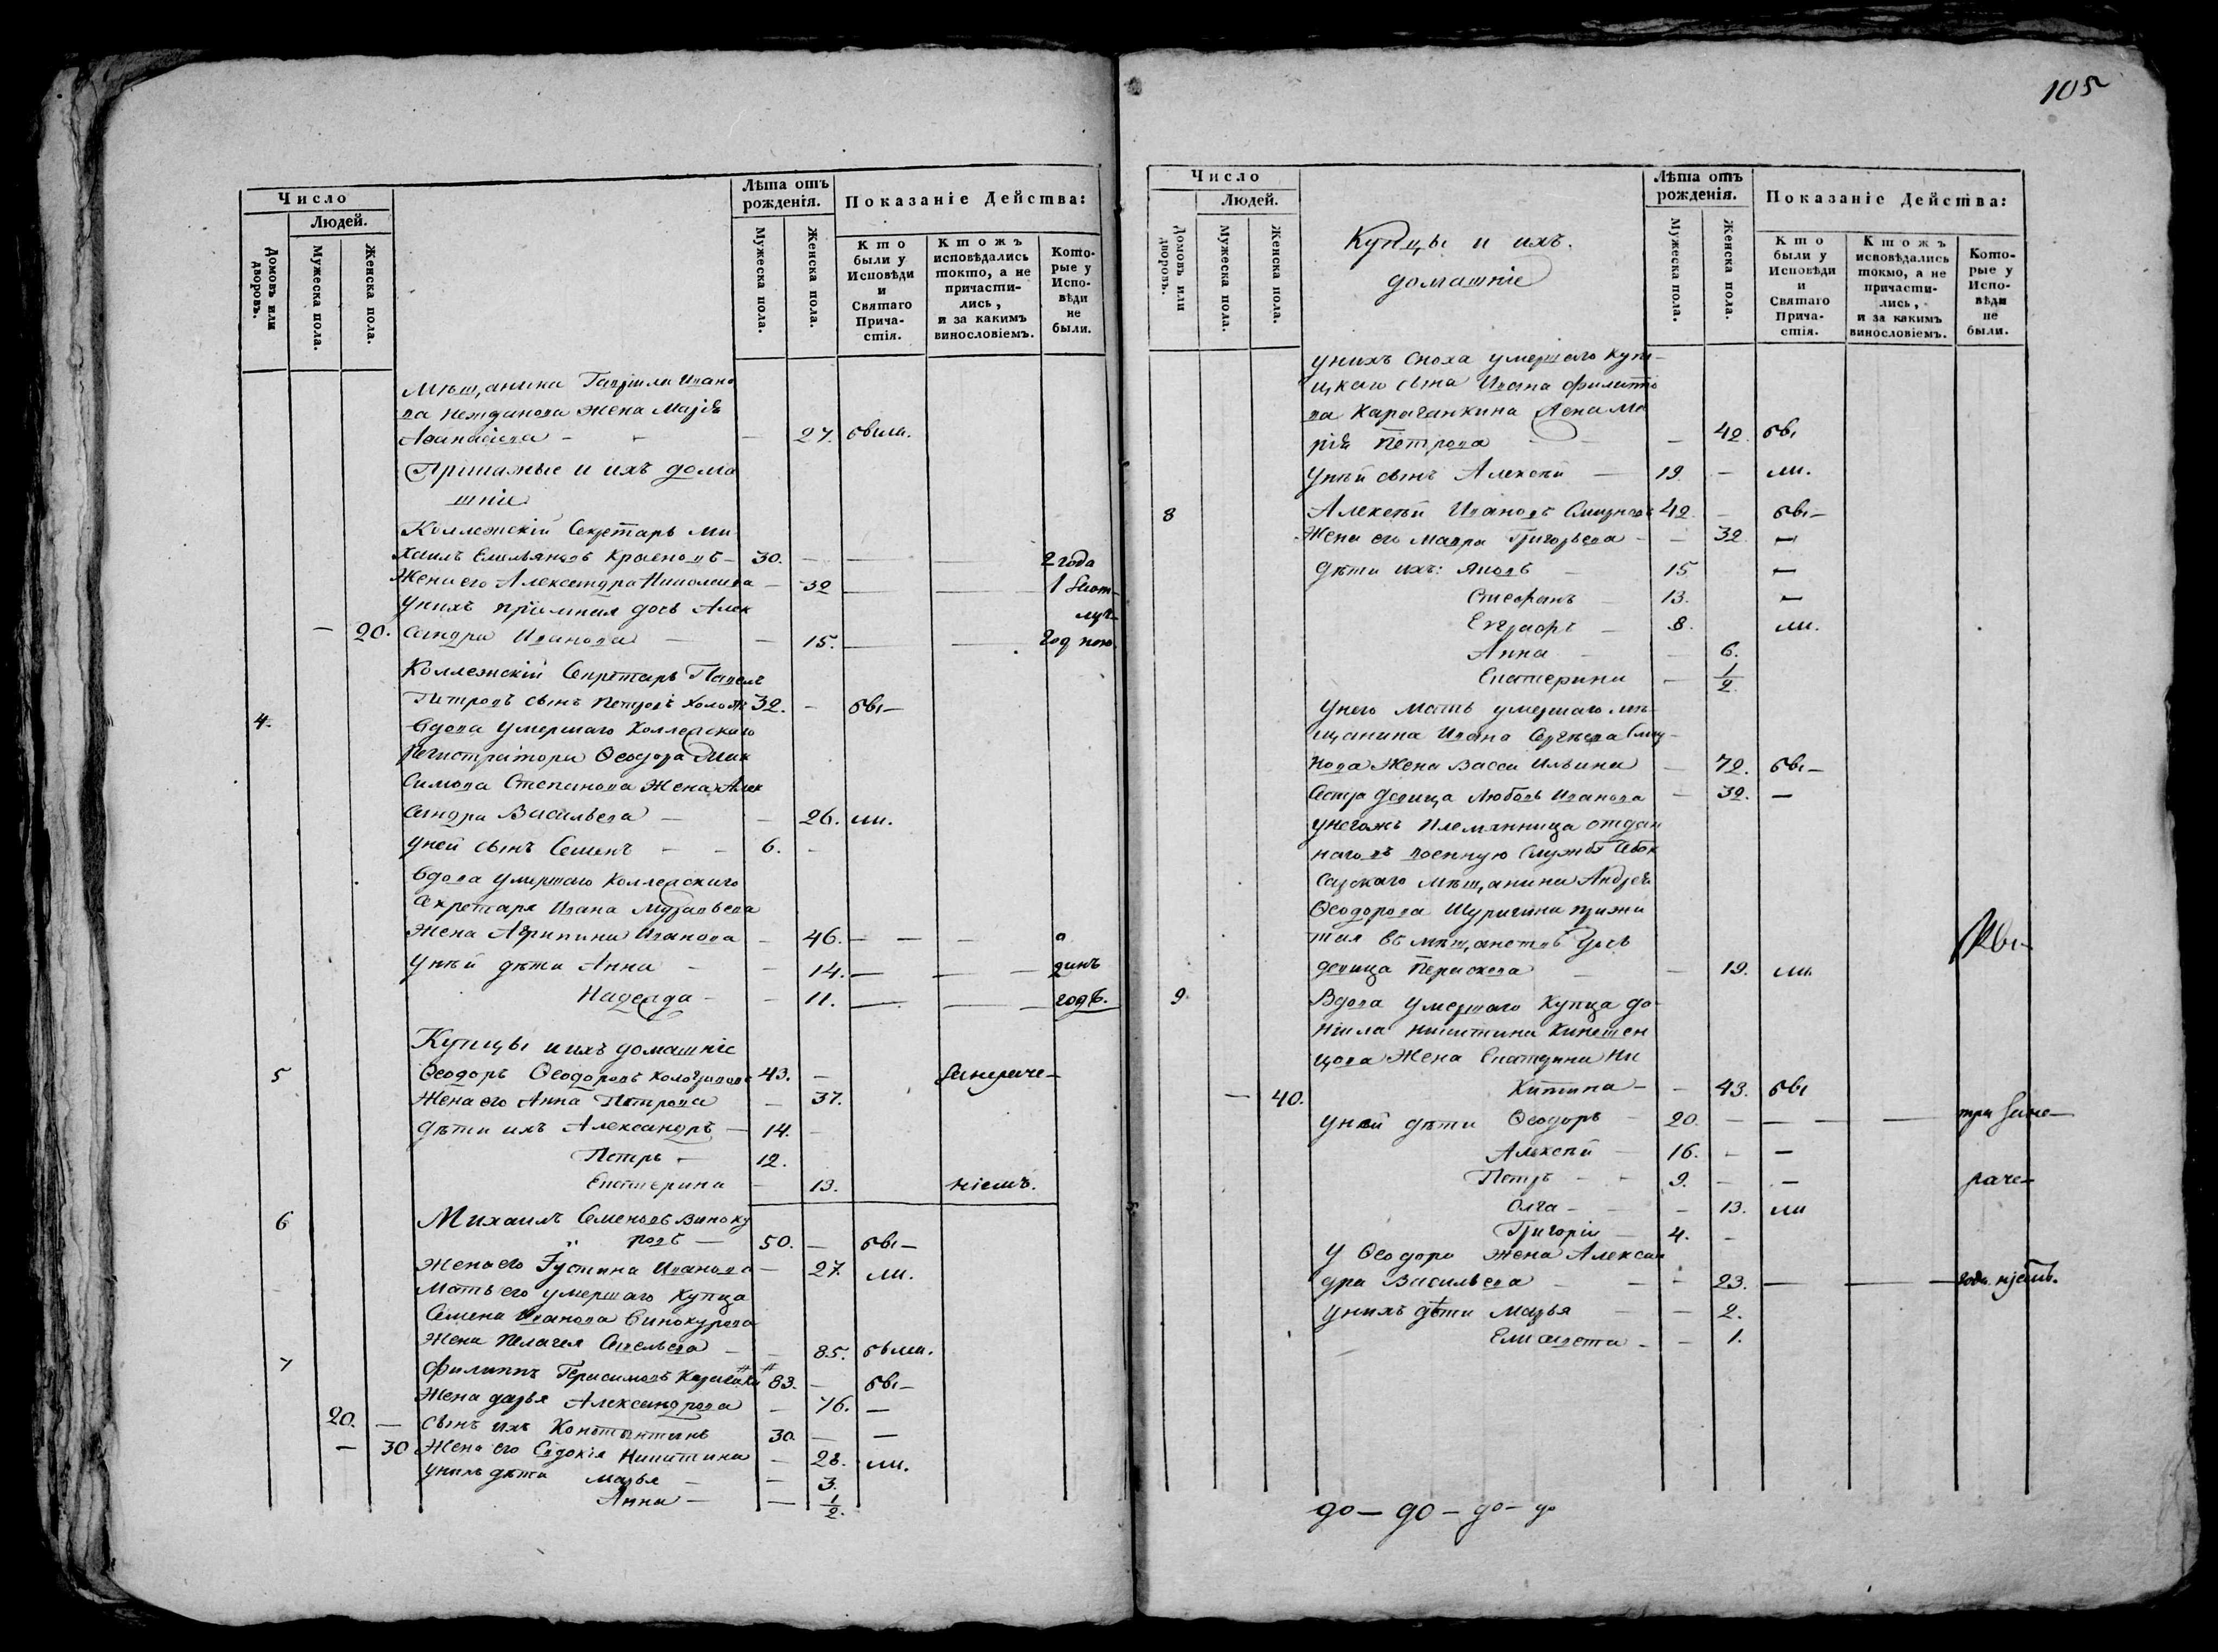 105
Число
Людей.
Домовъ или дворовъ.
Мужеска пола.
Женска пола.
Лѣта отъ рожденія.
Мужеска пола.
Женска пола.
Показаніе Действа:
Кто были у Исповѣди и Святаго Причастія.
Ктожъ исповѣдались токмо, а не причастились, и за какимъ винословіемъ.
Которые у Исповѣди не были.
Мѣщанина Гаврила Ивано
ва Нежданова жена Марія
Афанасіева - - - 27. были.
Приказные и ихъ дома
шніе
Коллежскій Секретарь Ми
хаилъ Емельяновъ 30. - 2 года
Жена его Александра Николаева - 32
У нихъ дочь Алек
- 20. сандра Иванова - 15.
Коллежскій Секретарь Павелъ
Петровъ сынъ Петровъ холостъ 32. - бы-
4. Вдова умершаго Коллежскаго
Регистратора Ѳеодора Мак
симова Степанова жена Алек
сандра Васильева - - 26. ли.
У ней сынъ Семенъ - - 6. -
Вдова умершаго Коллежскаго
Секретаря Ивана Муравьева
жена Агрипина Иванова - 46. - - - о
У ней дѣти Анна - - 14. - - - динъ
Надежда - - 11. - - годъ.
Купцы и ихъ домашніе
5 Ѳеодоръ Ѳеодоровъ 43. - За нераче-
Жена его Анна Петрова - 37.
Дѣти ихъ Александръ - 14. -
Петръ - 12.
Екатерина - 13. ніемъ.
6 Михаилъ Семеновъ Виноку
ровъ - 50. - бы-
Жена его Іустина Иванова - 27 ли.
Мать его умершаго купца
Семена Иванова Винокурова
жена Пелагея Савельева - - 85. были.
7 Филиппъ Герасимовъ 83. - бы-
Жена Дарья Александрова - 76. -
20. - Сынъ ихъ Константинъ 30. - -
- 30 Жена его Евдокія Никитина - 28. ли.
У нихъ дѣти Марья - - 3.
Анна - - 1/2.
Число
Людей.
Домовъ или дворовъ.
Мужеска пола.
Женска пола.
Купцы и ихъ
домашніе
Лѣта отъ рожденія.
Мужеска пола.
Женска пола.
Показаніе Действа:
Кто были у Исповѣди и Святаго Причастія.
Ктожъ исповѣдались токмо, а не причастились, и за какимъ винословіемъ.
Которые у Исповѣди не были.
У нихъ сноха умершаго купе-
цкаго сына Ивана Филиппо
ва Карачанкина жена Ма
рія Петрова - 42. бы
У ней сынъ Алексѣй - 19. - ли.
8 Алексѣй Ивановъ 42. - бы-
Жена его Мавра Григорьева - - 32. -
Дѣти ихъ: Яковъ - 15 -
Стефанъ - 13. -
Евграфъ - 8. ли.
Анна - - 6.
Екатерина - 1/2.
У него мать умершаго мѣ-
щанина Ивана Сергѣева
жена Васса Ильина - 72. бы-
Сестра девица Любовь Иванова - 32. -
У негожъ племянница отдан
наго въ военную службу Чебок
сарскаго мѣщанина Андрея
Ѳеодорова Шуригина прижи
тая въ мѣщанствѣ дочь
девица Парасковa - - 19. ли.
9 Вдова умершаго купца Да
ніила Никитина Кинешем
цова жена Екатерина Ни
- 40. китина - - 43. бы
У ней дѣти Ѳеодоръ - 20. - - - - три за не-
Алексѣй - 16. - -
Петръ - - 9. - - раче-
Олга - - - 13. ли
Григорій - 4. -
У Ѳеодора жена Алексан
дра Васильева - - - 23. - - -
У нихъ дѣти Марья - - 2.
Елисавета - - 1.
до - до - до - до